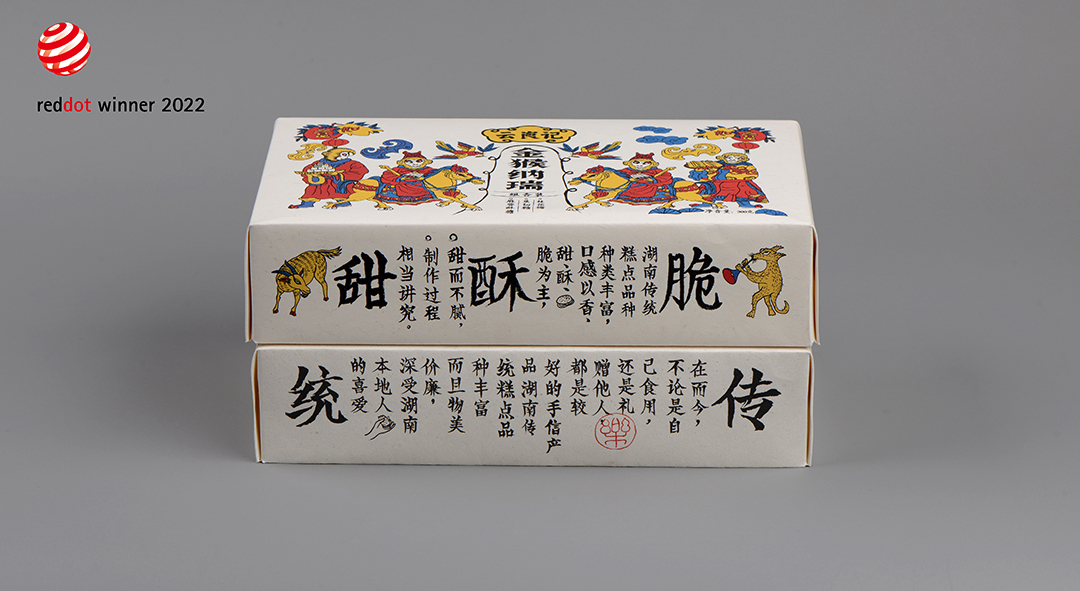 reddot winner 2022
金猴纳瑞
净含量：
脆
湖南传统
糕点品种
种类丰富，
口感以香、
甜、酥、
脆为主，
酥
甜而不腻，
制作过程
相当讲究。
甜
传
在而今，
不论是自
己食用，
还是礼
赠他人，
都是较
好的手信产
品湖南传
统糕点品
种丰富
而且物美
价廉，
深受湖南
本地人
的喜爱
统